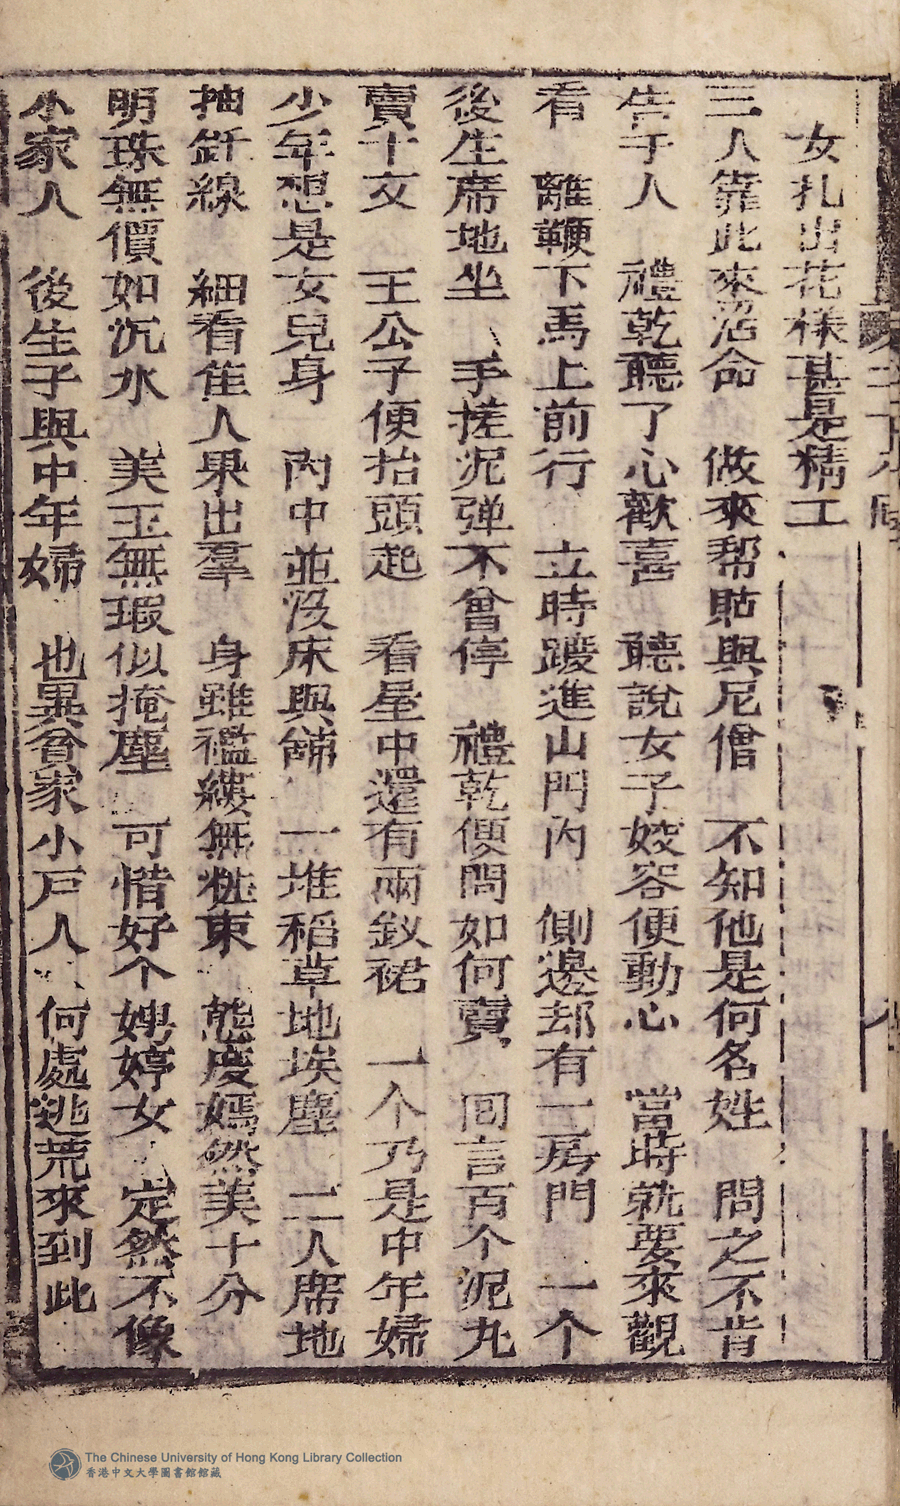 女扎出花樣甚是精工
三人靠此來活命　做來帮貼與尼僧　不知他是何名姓　問之不肯
告于人　禮乾聽了心歡喜　聽說女子姣容便動心　當時就要來觀
看　離鞭下馬上前行　立時踱進山門內　側邊却有一房門　一个
後生席地坐　手搓泥弹不曾停　禮乾便問如何賣　囘言百个泥丸
賣十文　王公子便抬頭起　看屋中還有兩釵裙　一个乃是中年婦
少年想是女兒身　內中並没床與鋪　一堆稻草地埃塵　二人席地
抽針線　細看佳人果出羣　身雖襤縷無粧束　態度嫣然美十分
明珠無價如沉水　美玉無瑕似掩塵　可惜好个娉婷女　定然不像
小家人　後生子與中年婦　也異貧家小戶人　何處逃荒來到此
The Chinese University of Hong Kong Library Collection
香港中文大學圖書館館藏